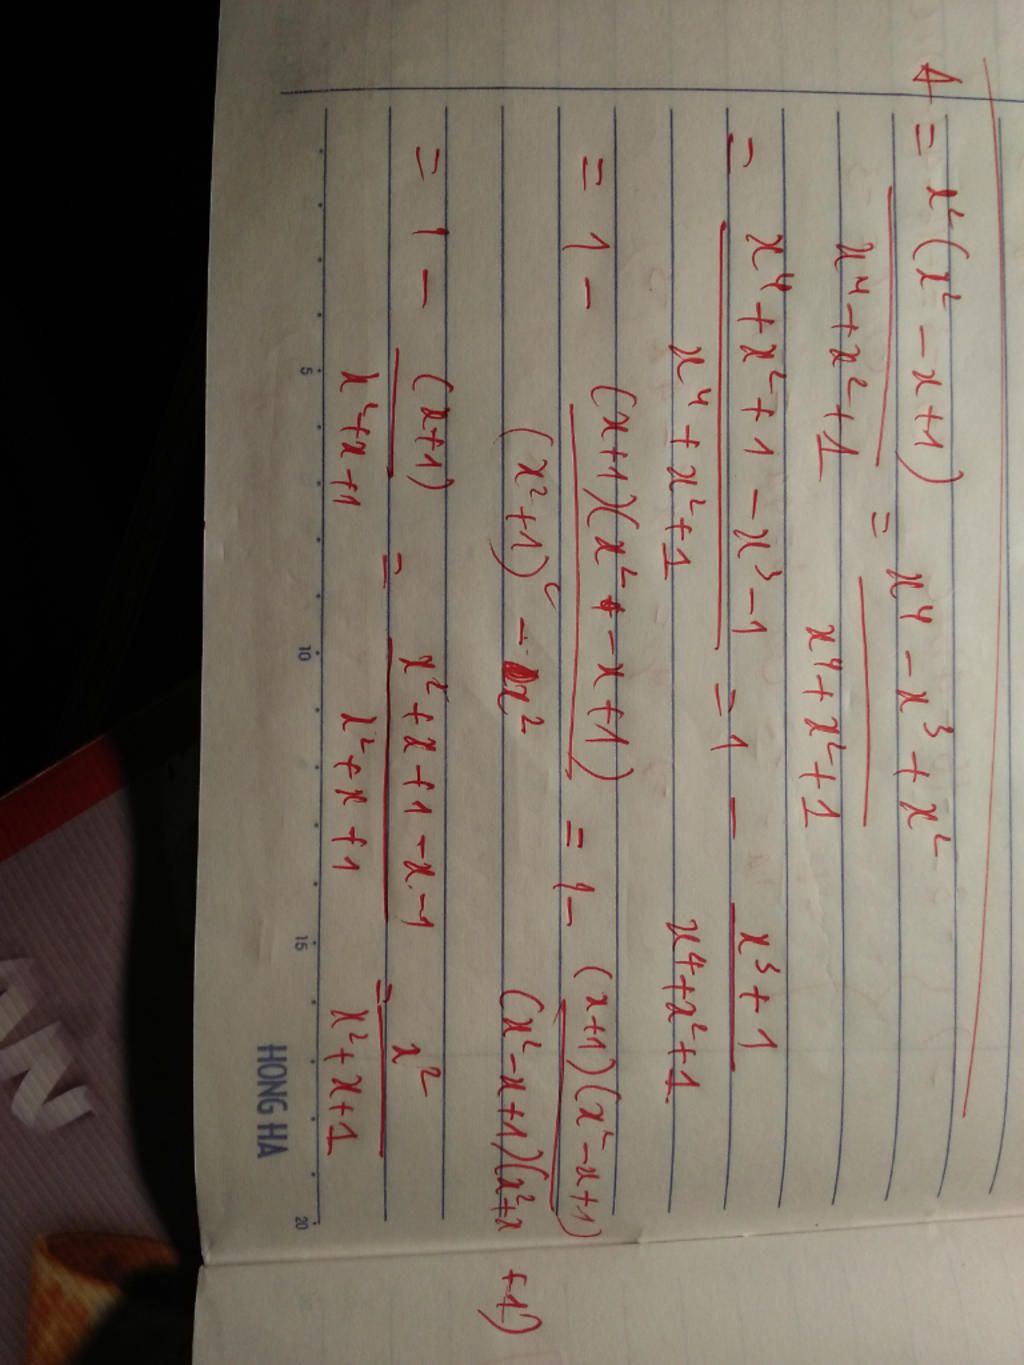 A = x²(x² - x + 1) / x⁴ + x² + 1 = x⁴ - x³ + x² / x⁴ + x² + 1
= x⁴ + x² + 1 - x³ - 1 / x⁴ + x² + 1 = 1 - x³ + 1 / x⁴ + x² + 1
= 1 - (x+1)(x² - x + 1) / (x² + 1)² - x² = 1 - (x+1)(x² - x + 1) / (x² - x + 1)(x² + x + 1)
= 1 - (x+1) / x² + x + 1 = x² + x + 1 - x - 1 / x² + x + 1 = x² / x² + x + 1
5 10 15 20
HONG HA